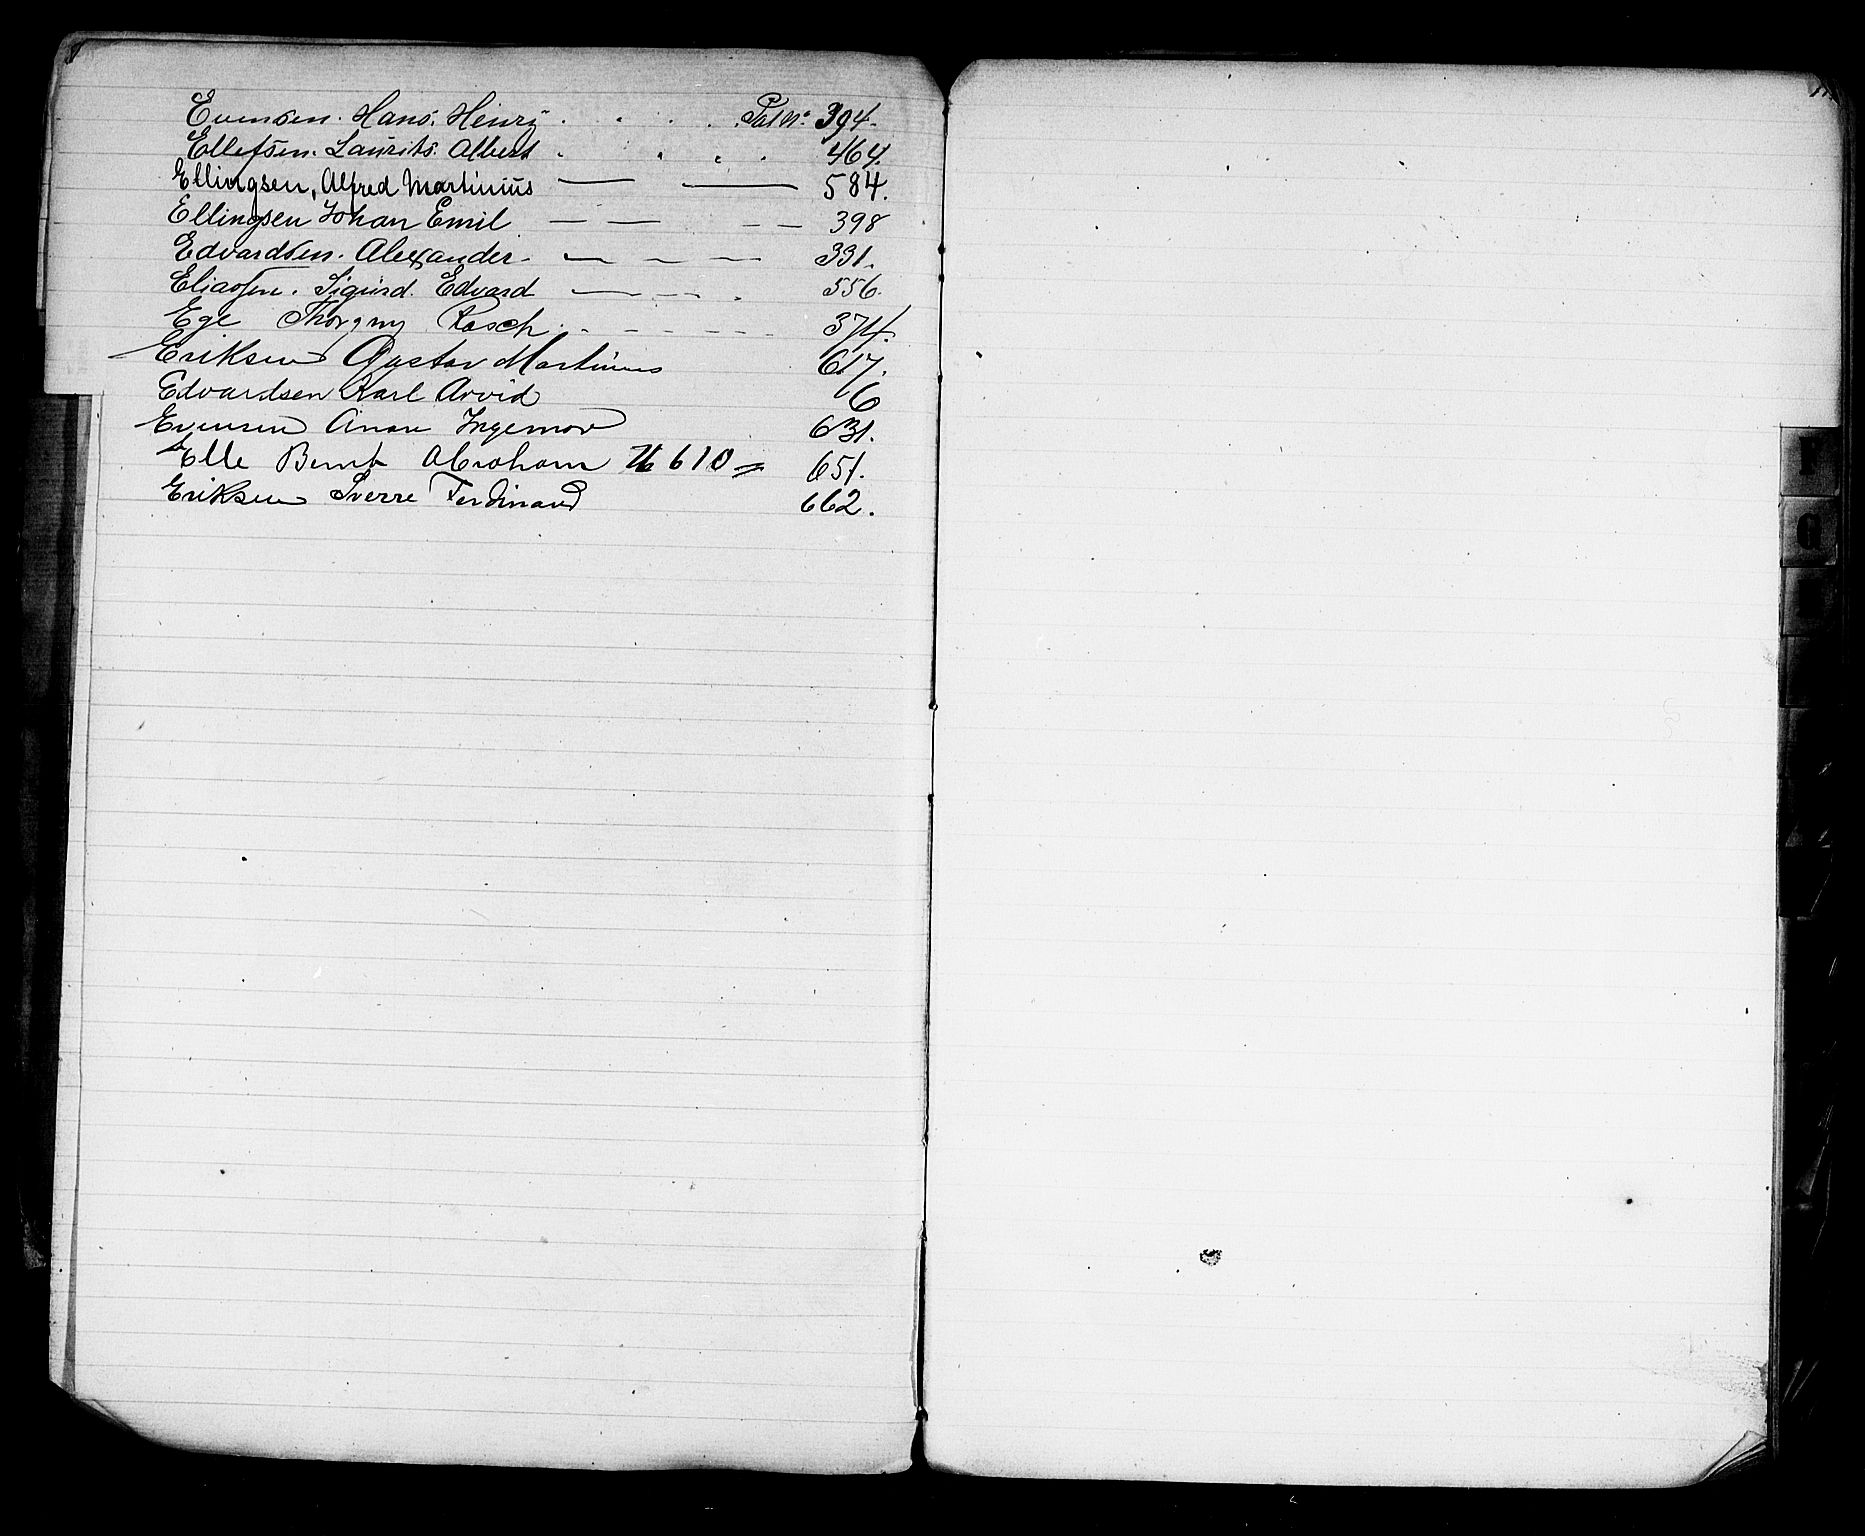 Evensen. Hans. Henry . . . . Pat No 394.
Ellefsen. Laurits. Albert . . . . 464.
Ellingsen, Alfred Martinius — — 584.
Ellingsen Johan Emil — — — — 398
Edvardsen. Alexander. — — — — 331.
Eliassen. Sigurd. Edvard — — — . 556.
Ege Thorgny Rosch. - - - - - - 374.
Eriksen Gustav Martinius 617.
Edvardsen Karl Arvid 6
Evensen Einar Ingemov 631.
Elle Bernt Abraham 610 = 651.
Eriksen Sverre Ferdinand 662.
F
G